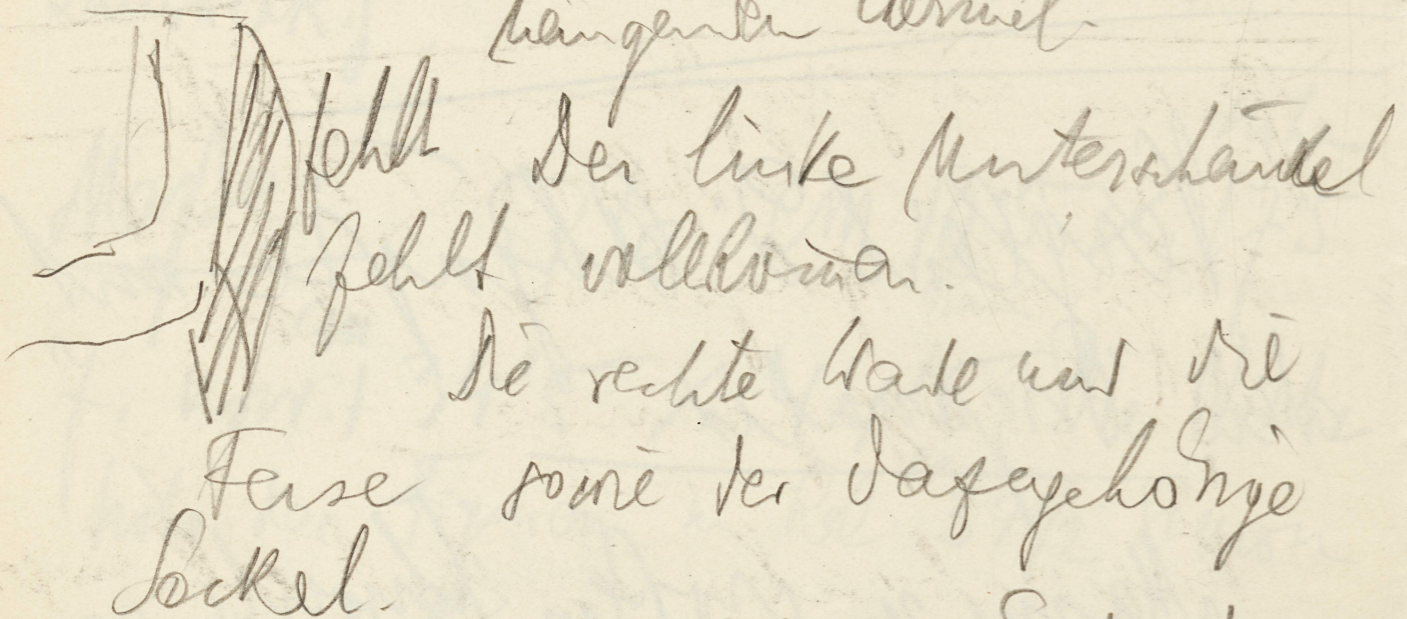 hängenden Ärmel.
fehlt Der linke Unterschänkel
fehlt vollkom̄en.
Die rechte Wade und die
Ferse sowie der dazugehörige
Sockel.